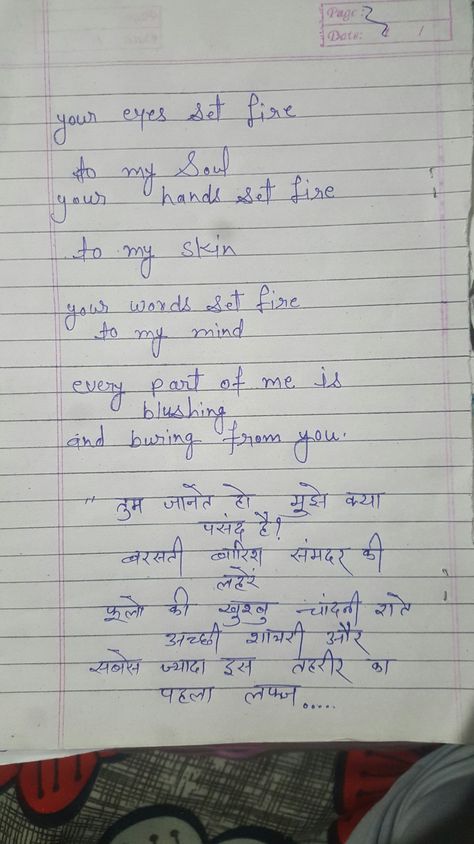 Page:
Date:
your eyes set fire
to my soul
your hands set fire
to my skin
your words set fire
to my mind
every part of me is
blushing
and buring from you.
" तुम जानेत हो मुझे क्या
पसंद है?
बरसती बारिश संमदर की
लहेरे
फूलो की खुश्बु चांदनी राते
अच्छी शायरी और
सबसे ज्यादा इस तहरीर का
पहला लफ्ज .....